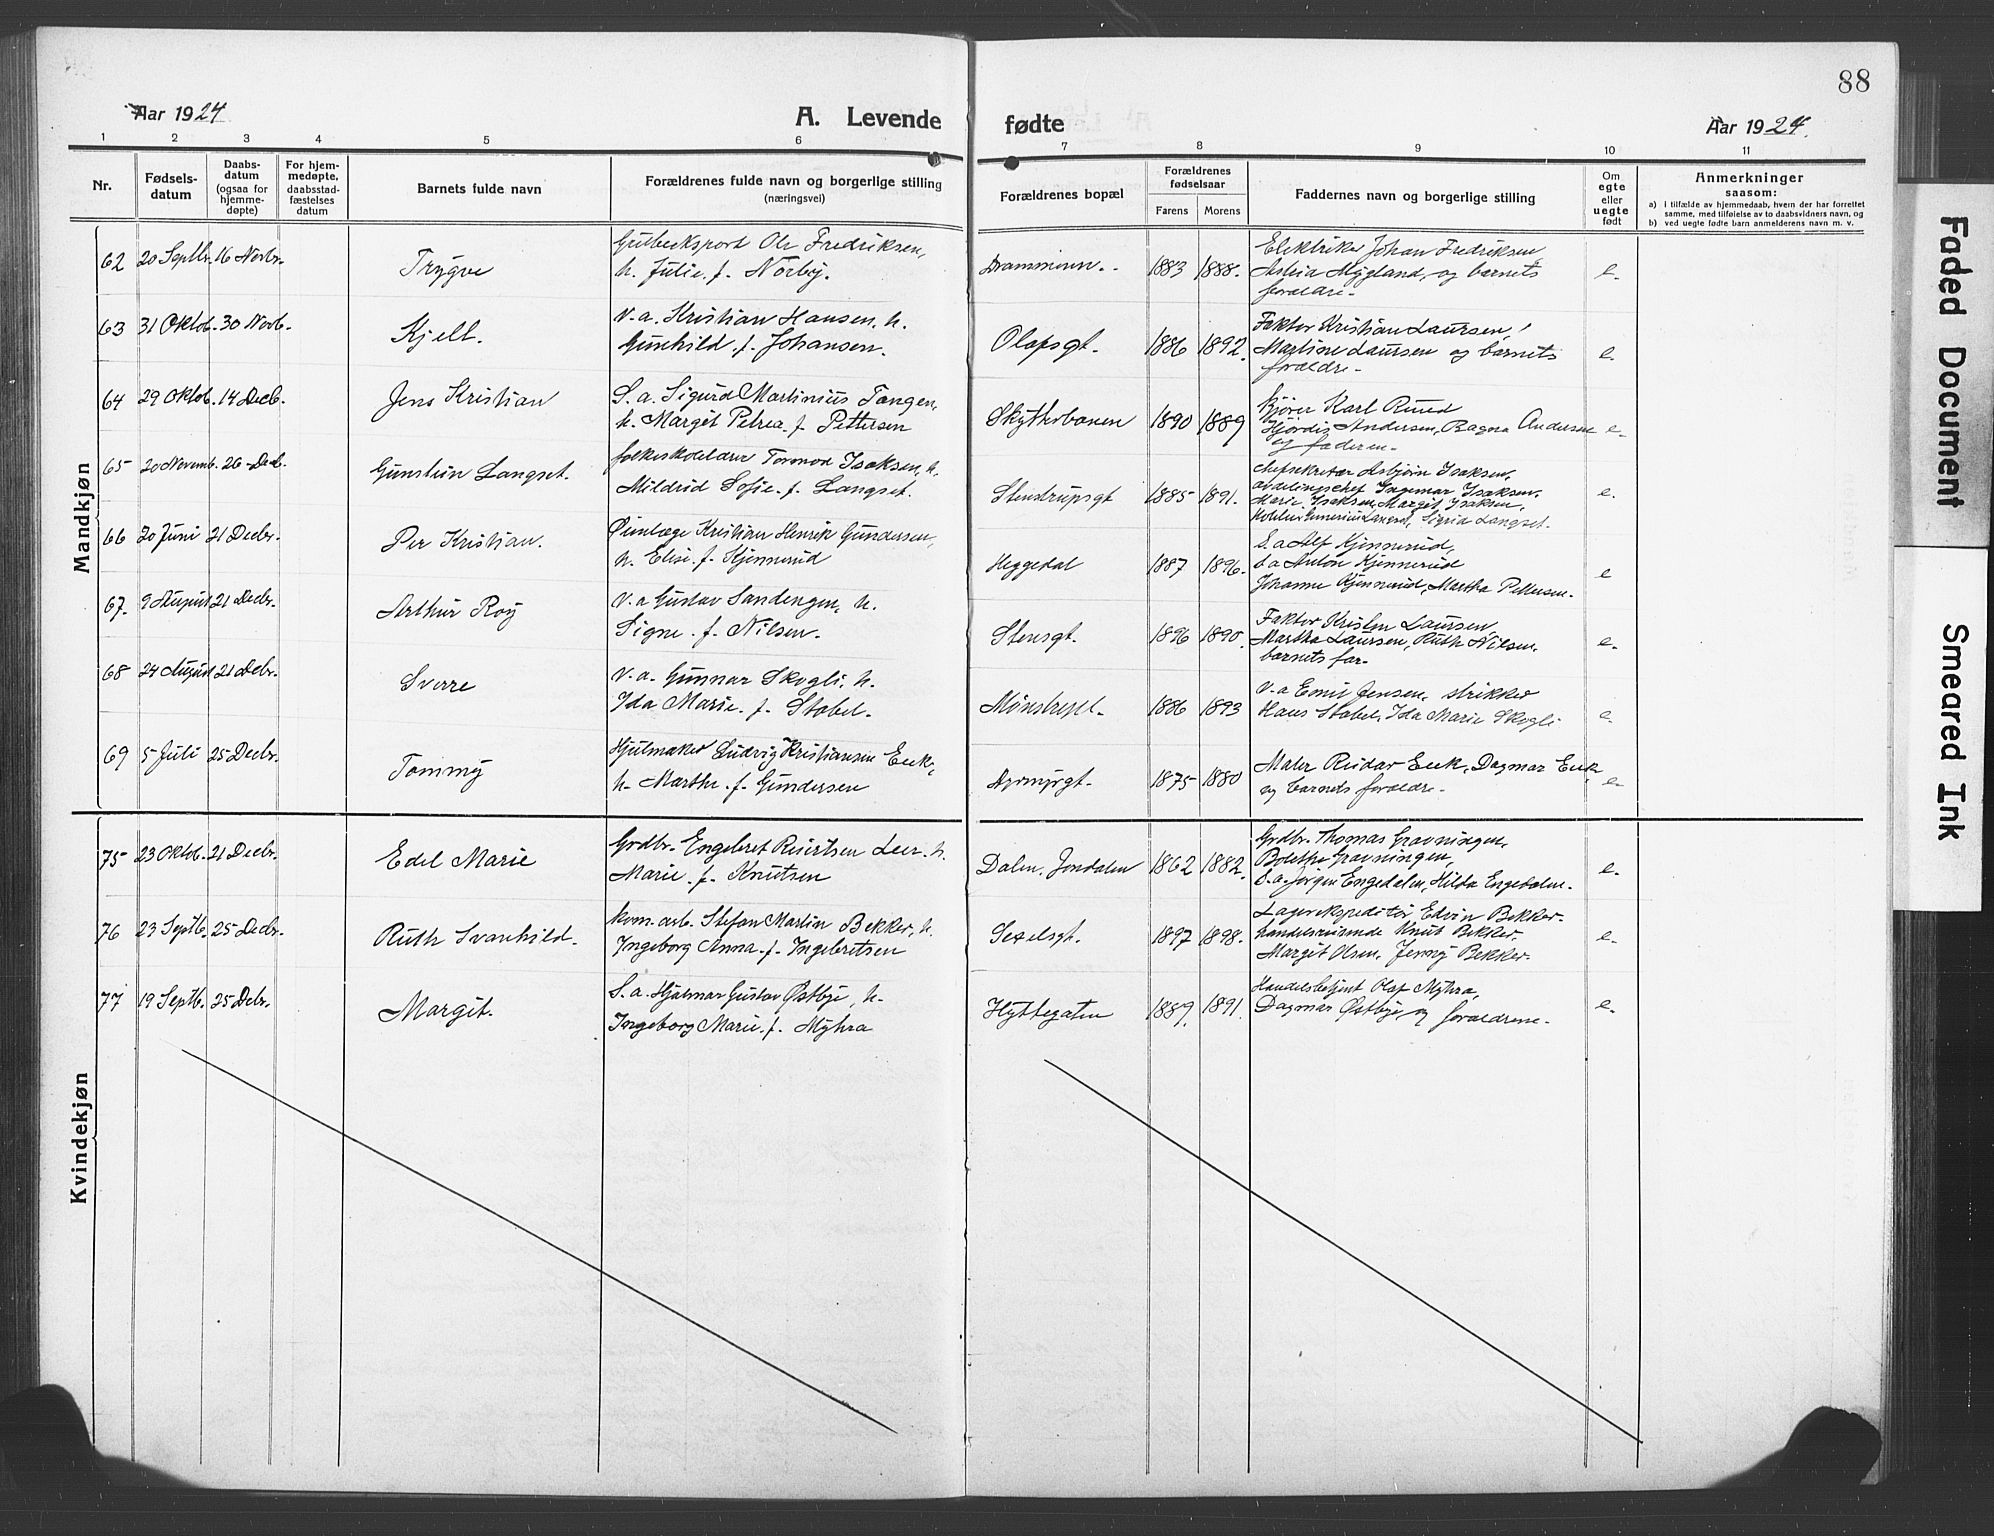 88
Aar 1924
A. Levende
fødte
Aar 1924.
1 2 3 4 5 6 7 8 9 10 11
Nr.
Fødsels-
datum
Daabs-
datum
(ogsaa for
hjemme-
døpte)
For hjem-
medøpte,
daabsstad-
fæstelses
datum
Barnets fulde navn
Forældrenes fulde navn og borgerlige stilling
(næringsvei)
Forældrenes bopæl
Forældrenes
fødselsaar
Farens Morens
Faddernes navn og borgerlige stilling
Om
egte
eller
uegte
født
Anmerkninger
saasom:
a) I tilfælde av hjemmedaab, hvem der har forrettet
samme, med tilføielse av to daabsvidners navn, og
b) ved uegte fødte barn anmelderens navn m. v.
Mandkjøn
62 20 Septbr. 16 Novbr.
Trygve
Ole Fredriksen,
h. Julie, f. Nørby.
Drammenv.
1883 1888.
Elektriker Johan Fredriksen,
Astria Mygland, og barnets
forældre.
e.
63 31 Oktob. 30 Novb.
Kjell.
v.a. Kristian Hansen, h.
Gunhild f. Johansen.
Olafsgt.
1886 1892.
Faktor Kristian Laursen,
Martine Laursen og barnets
forældre.
e.
64 29 Oktob. 14 Decb.
Jens Kristian
S.a. Sigurd Martinius Tangen,
h. Margit Petrea f. Pettersen
Skytterbanen
1890 1889
Kjører Karl Ruud
Hjørdis Andersen, Ragna Andersen
og faderen.
e.
65 20 Novemb. 26 Decb.
Gunstein Langset.
folkeskolelærer Tormod Isaksen, h.
Mildrid Sofie f. Langset.
Stenstrupsgt
1885 1891.
chefsekretær Asbjørn Isaksen,
avdelingschef Ingemar Isaksen,
Marie Isaksen, Margit Isaksen,
Langset, Sigrid Langset.
e.
66 20 Juni 21 Decbr.
Per Kristian.
Øienlæge Kristian Henrik Gundersen,
h. Elise f. Kjennerud
Heggedal
1887 1896.
S.a Alf Kjennerud,
S.a Anton Kjennerud
Johanne Kjennerud, Martha Pettersen.
e
67. 9 August 21 Decbr.
Arthur Roy
v.a Gustav Sandengen, h.
Signe f. Nilsen.
Stensgt.
1896 1890.
Faktor Kristen Laursen
Martha Laursen, Ruth Nilsen,
barnets far.
e.
68 24 August 21 Decbr.
Sverre
v.a. Gunnar Skogli, h.
Ida Marie f. Stabel.
1886 1893
v.a Emil Jensen, strikker
Hans Stabel, Ida Marie Skogli
e.
69 5 Juli 25 Decbr.
Tommy
Hjulmaker Ludvig Kristiansen Eek,
h. Marthe f. Gundersen
Dyrmyrgt.
1875 1880
Maler Reidar Eek, Dagmar Eek,
og barnets forældre.
e.
Kvindekjøn
75 23 Oktob. 21 Decbr.
Edel Marie
Grdbr. Engebret Reiertsen Leer h.
Marie f. Knutsen
Dalen, Jondalen
1862 1882.
Grdbr. Thomas Gravningen,
Bolethe Gravningen,
S.a. Jørgen Engedalen, Hilda Engedalen.
e.
76 23 Septb. 25 Decbr.
Ruth Svanhild.
kom. arb. Stefan Martin Bekker, h.
Ingeborg Anna f. Ingebretsen
Sezelsgt.
1897 1898.
Lagerekspeditør Edvin Bekker.
Knut Bekker,
Margit Olsen, Jenny Bekker.
e.
77 19 Septb. 25 Decbr.
Margit.
S.a. Hjalmar Gustav Østbye, h.
Ingeborg Marie f. Myhra
Hyttegaten
1889. 1891.
Handelsbetjent Olaf Myhra,
Dagmar Østbye, og forældrene.
e.
Faded Document
Smeared Ink